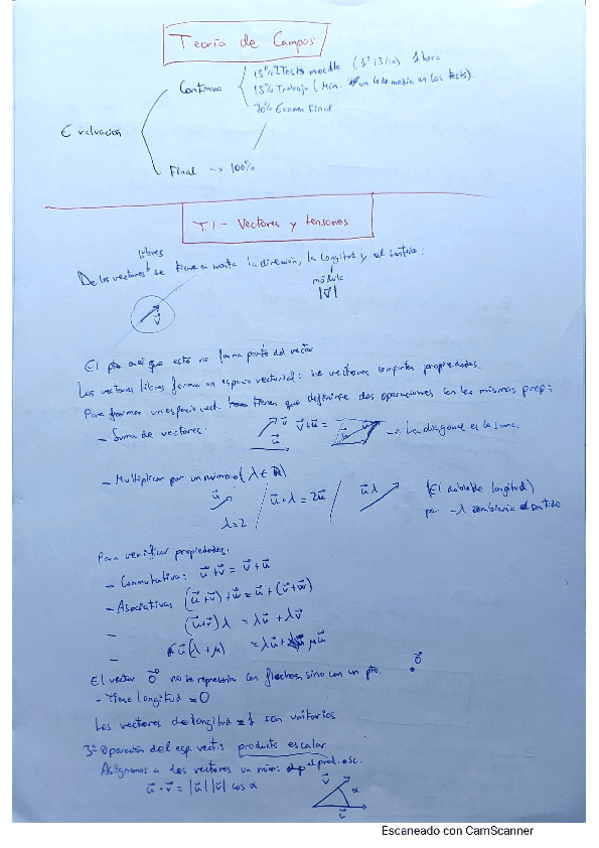 Teoría de Campos
15% 2 Tests moodle (1º 13/10) 1 hora
Continua
15% Trabajo (Min. un 4 de media en los tests)
70% Examen Final
Evaluación
Final → 100%
T.1 - Vectores y tensores
libres
De los vectores se tiene en cuenta la dirección, la longitud y el sentido:
módulo
|v⃗|
v⃗
El pto en el que esté no forma parte del vector
Los vectores libres forman un espacio vectorial: los vectores comparten propiedades.
Para formar un espacio vect. tienen que definirse dos operaciones con las mismas prop:
- Suma de vectores: v⃗ u⃗ v⃗+u⃗ = → La diagonal es la suma.
- Multiplicar por un número (λ ∈ ℝ)
u⃗ / u⃗·λ = 2u⃗ / u⃗λ (El doble de longitud)
λ=2 por -λ cambiaría el sentido
Para verificar propiedades:
- Conmutativa: u⃗+v⃗ = v⃗+u⃗
- Asociativa: (u⃗+v⃗)+w⃗ = u⃗+(v⃗+w⃗)
- (u⃗+v⃗)λ = λu⃗ + λv⃗
- u⃗(λ+μ) = λu⃗ + μu⃗
El vector 0⃗ no se representa con flechas, sino con un pto. 0⃗
- Tiene longitud = 0
Los vectores de longitud = 1 son unitarios
3ª Operación del esp. vect.: producto escalar
Asignamos a dos vectores un núm: el prod. esc.
u⃗·v⃗ = |u⃗| |v⃗| cos α
v⃗ α
Escaneado con CamScanner